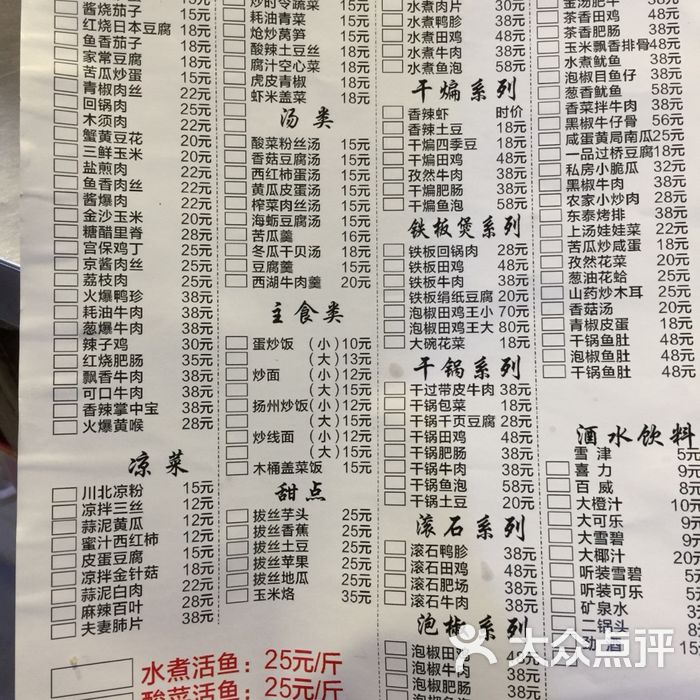 酱烧茄子 22元
红烧日本豆腐 18元
鱼香茄子 18元
家常豆腐 18元
苦瓜炒蛋 15元
青椒肉丝 22元
回锅肉 25元
木须肉 22元
蟹黄豆花 20元
三鲜玉米 20元
盐煎肉 22元
鱼香肉丝 22元
酱爆肉 22元
金沙玉米 20元
糖醋里脊 28元
宫保鸡丁 25元
京酱肉丝 25元
荔枝肉 25元
火爆鸭珍 38元
耗油牛肉 38元
葱爆牛肉 38元
辣子鸡 30元
红烧肥肠 35元
飘香牛肉 38元
可口牛肉 38元
香辣掌中宝 38元
火爆黄喉 28元
凉菜
川北凉粉 15元
凉拌三丝 12元
蒜泥黄瓜 12元
蜜汁西红柿 12元
皮蛋豆腐 15元
凉拌金针菇 18元
蒜泥白肉 22元
麻辣百叶 38元
夫妻肺片 38元
炒时令蔬菜
耗油青菜 15元
炝炒莴笋 18元
酸辣土豆丝 18元
腐汁空心菜 18元
虎皮青椒 18元
虾米盖菜 18元
汤类
酸菜粉丝汤 15元
香菇豆腐汤 15元
西红柿蛋汤 15元
黄瓜皮蛋汤 15元
榨菜肉丝汤 15元
海蛎豆腐汤 15元
苦瓜羹 16元
冬瓜干贝汤 18元
豆腐羹 15元
西湖牛肉羹 20元
主食类
蛋炒饭 (小) 10元
(大) 13元
炒面 (小) 12元
(大) 15元
扬州炒饭 (小) 12元
(大) 15元
炒线面 (小) 12元
(大) 15元
木桶盖菜饭 15元
甜点
拔丝芋头 25元
拔丝香蕉 25元
拔丝土豆 25元
拔丝苹果 25元
拔丝地瓜 25元
玉米烙 35元
水煮肉片 30元
水煮鸭胗 38元
水煮田鸡 48元
水煮牛肉 38元
水煮鱼泡 58元
干煸系列
香辣虾 时价
香辣土豆 18元
干煸四季豆 18元
干煸田鸡 48元
孜然牛肉 38元
干煸肥肠 38元
干煸鱼泡 58元
铁板煲系列
铁板回锅肉 28元
铁板田鸡 48元
铁板牛肉 38元
铁板绢纸豆腐 20元
泡椒田鸡王小 70元
泡椒田鸡王大 80元
大碗花菜 18元
干锅系列
干过带皮牛肉 38元
干锅包菜 18元
干锅千页豆腐 28元
干锅田鸡 48元
干锅肥肠 38元
干锅牛肉 38元
干锅鱼泡 58元
干锅土豆 20元
滚石系列
滚石鸭胗 38元
滚石田鸡 48元
滚石肥场 38元
滚石牛肉 38元
泡椒系列
泡椒田鸡 48元
泡椒牛肉 38元
泡椒鱼泡 58元
金汤肥牛 38元
茶香田鸡 48元
茶香肥肠 38元
玉米飘香排骨 48元
水煮鱿鱼 38元
泡椒目鱼仔 38元
葱香鱿鱼 58元
香菜拌牛肉 38元
黑椒牛仔骨 56元
咸蛋黄局南瓜 25元
一品过桥豆腐 18元
私房小脆瓜 32元
黑椒牛肉 38元
农家小炒肉 28元
东泰烤排 38元
上汤娃娃菜 22元
苦瓜炒咸蛋 18元
孜然花菜 20元
葱油花蛤 25元
山药炒木耳 25元
香菇汤 20元
青椒皮蛋 18元
干锅鱼肚 48元
泡椒鱼肚 48元
干锅鱼肚 38元
酒水饮料
雪津 5元
喜力 9元
百威 8元
大橙汁 10元
大可乐 9元
大雪碧 9元
大椰汁 20元
听装雪碧 5元
听装可乐 5元
矿泉水 3元
二锅头 8元
劲酒 15元
水煮活鱼：25元/斤
酸菜活鱼：25元/斤
大众点评